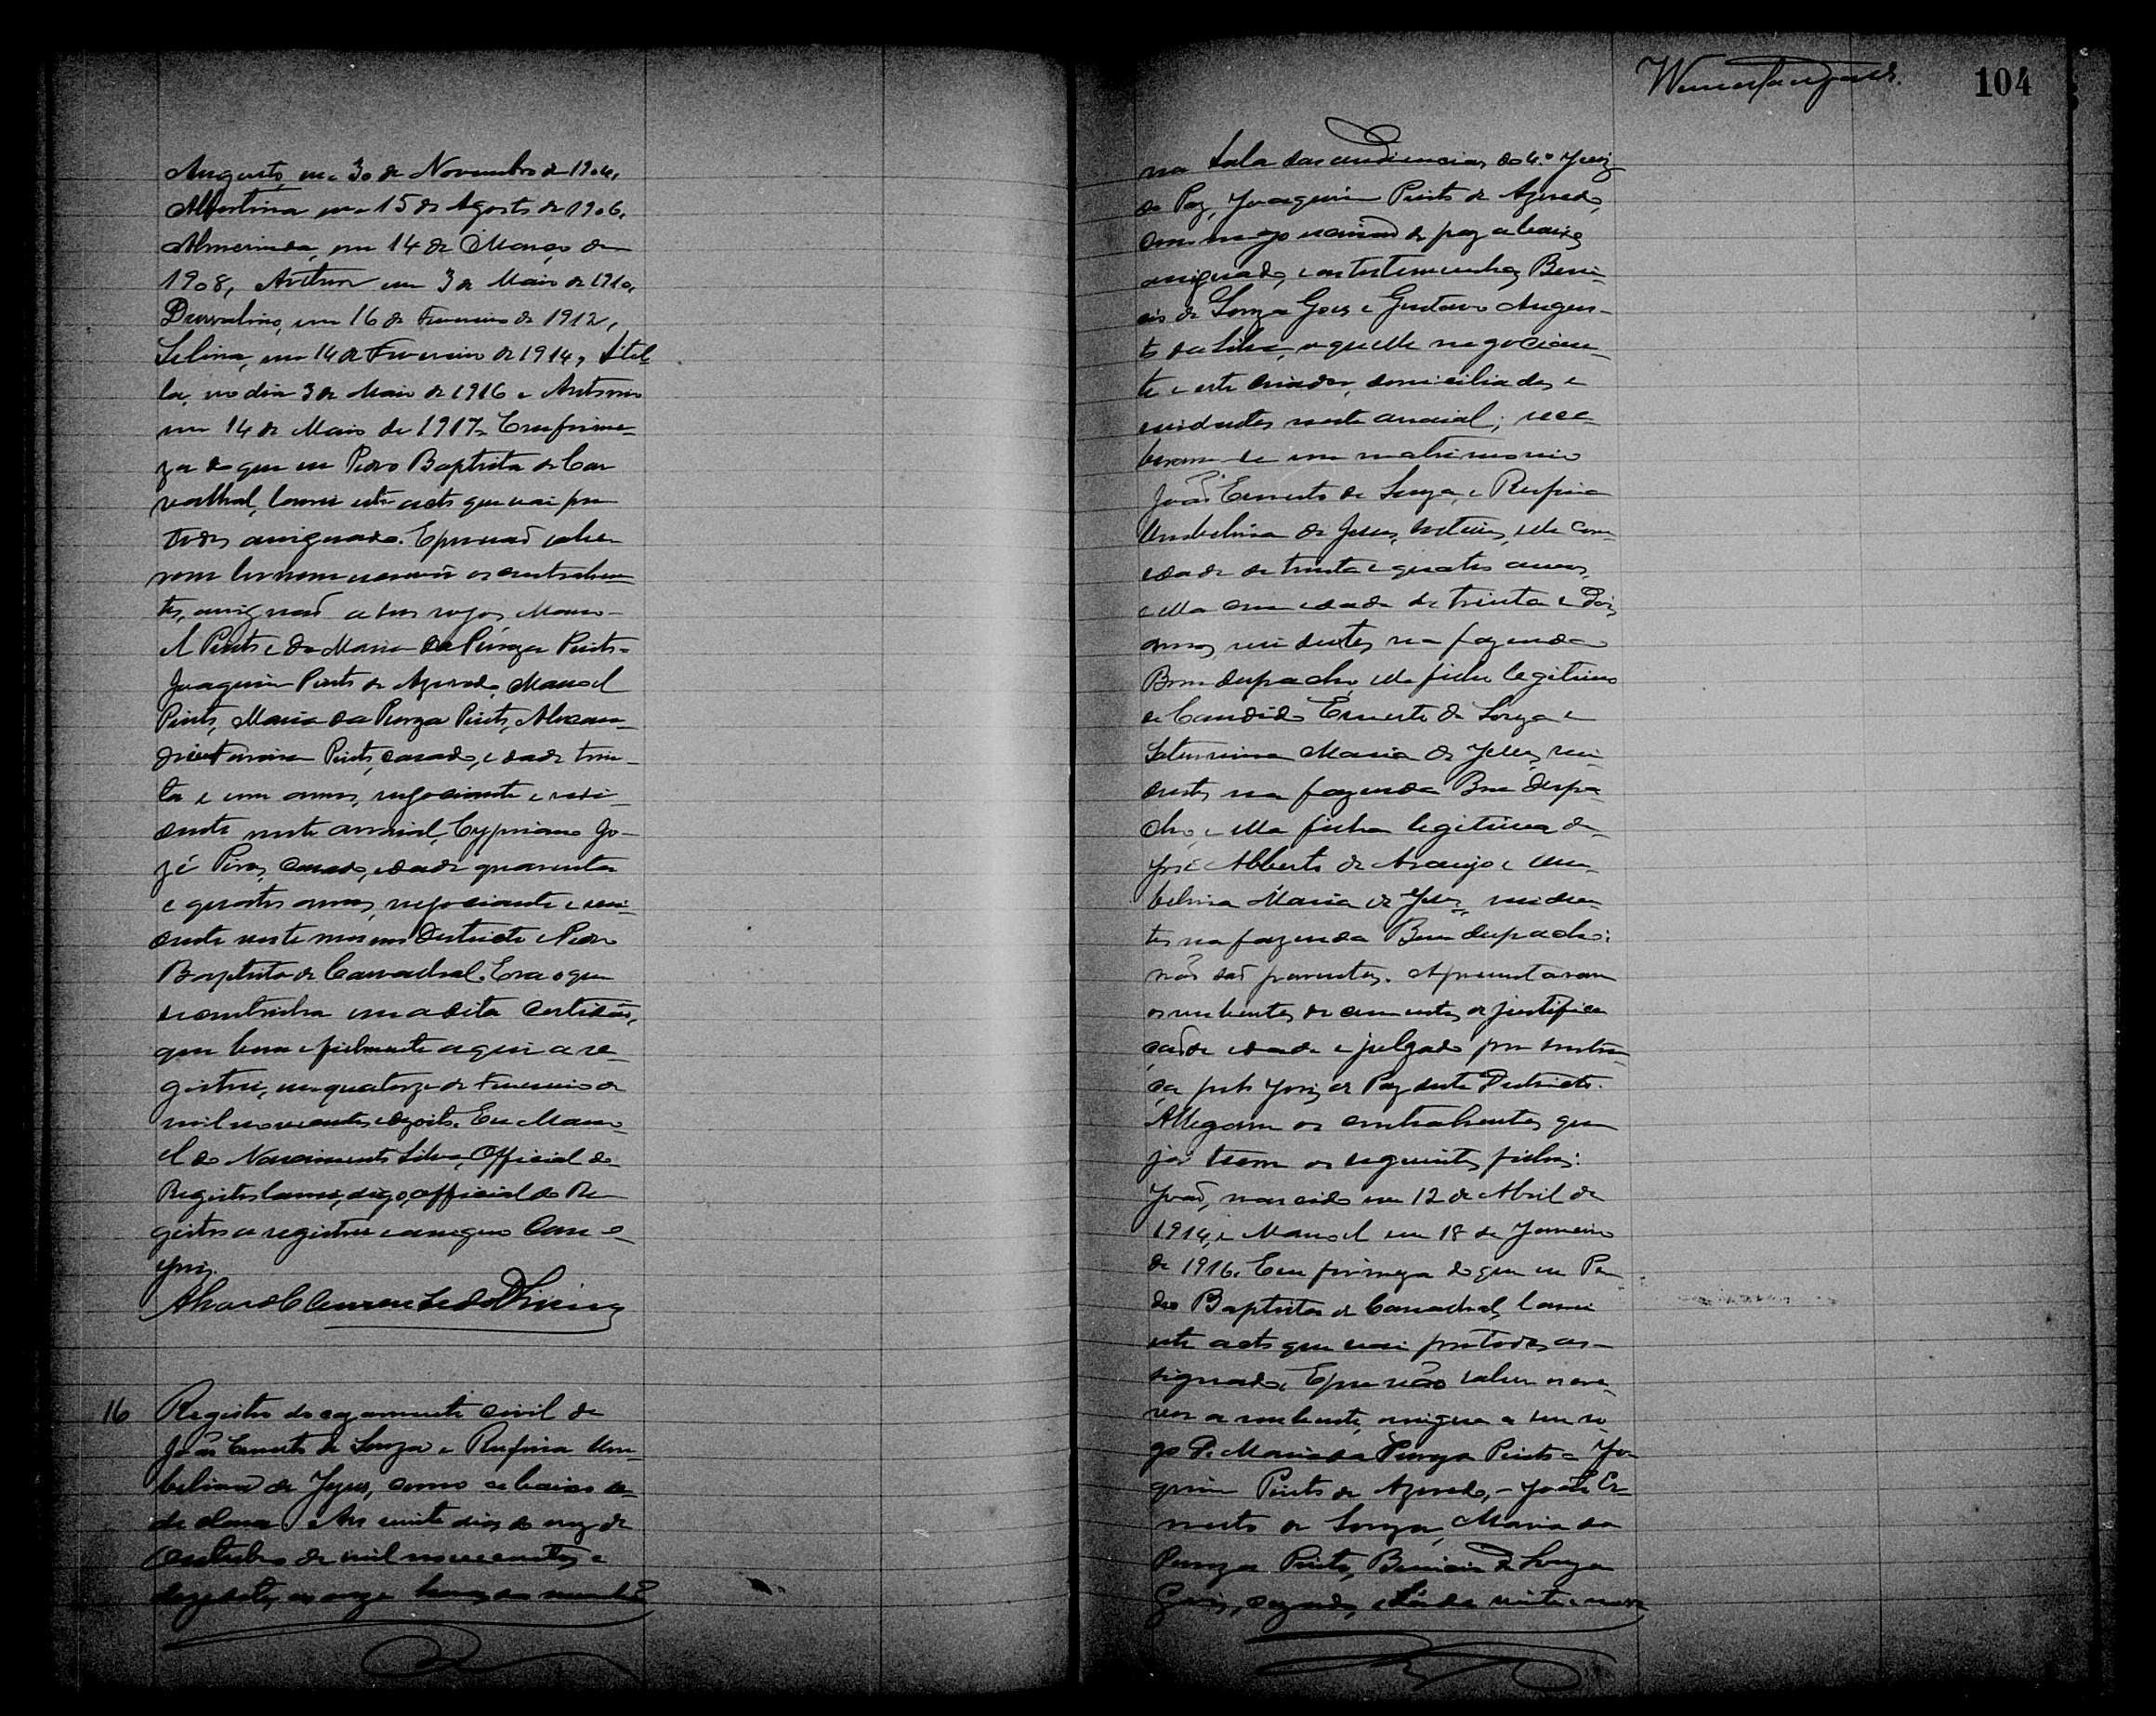 Augusto, em 30 de Novembro de 1904,
Albertina em 15 de Agosto de 1906,
Almerinda, em 14 de Março de
1908, Arthur em 3 de Maio de 1910,
Durvalino, em 16 de Fevereiro de 1912,
Selina, em 14 de Fevereiro de 1914, Stel-
la, no dia 3 de Maio de 1916 e Antonio
em 14 de Maio de 1917. Em firme-
za do que eu Pedro Baptista de Car
vathal, lavrei este acto que vai por
todos assignado. E por não sabe-
rem ler nem escrever os contrahen
tes, assignão a seus rogos Mano-
el Pinto e Da Maria da Pureza Pinto =
Joaquim Pinto de Azevedo, Manoel
Pinto, Maria da Pureza Pinto, Alexan-
dre Pinto, casado, idade trin-
ta e um annos, negociante e resi-
dente neste arraial, Cypriano Jo-
zé Pires, casado, idade quarenta
e quatro annos, negociante e resi-
dente neste mesmo Districto e Pedro
Baptista de Carvathal. Era o que
se continha em a dita certidão,
que bem e fielmente aqui a re-
gistrei, em quatorze de Fevereiro de
mil novecentos e dezoito. Eu Mano-
el do Nascimento Silva, Official do
Registro lavrei, digo, official do Re-
gistro a registrei e assigno com o
Juiz.
16 Registro do cazamento civil de
João Ernesto de Souza e Rufina Um-
belina de Jezus, como abaixo se
declara. Aos vinte dias do mez de
Outubro de mil novecentos e
dezesete, as onze horas da manhã
104
na sala das audiencias do 4.º Juiz
de Paz, Joaquim Pinto de Azevedo,
commigo escrivão de paz abaixo
assignado, e as testemunhas Beni-
cio de Souza Goes e Gustavo Augus-
to da Silva, aquelle negocian-
te e este criador, domiciliados e
residentes neste arraial; rece-
beram-se em matrimonio
João Ernesto de Souza, e Rufina
Umbelina de Jesus, solteiros, elle com
edade de trinta e quatro annos,
e ella com edade de trinta e dois
annos, residentes na fazenda
Bom despacho, elle filho legitimo
de Candido Ernesto de Souza e
Saturnina Maria de Jesus, resi-
dentes na fazenda Bom Despa-
cho, e ella filha legitima de
José Alberto de Araujo e Um-
belina Maria de Jesus, residen-
tes na fazenda Bom despacho:
não são parentes. Apresentaram
os nubentes documentos de justifica-
ção de edade e julgado por senten-
ça pelo Juiz de Paz deste Districto.
Allegam os contrahentes que
já teem os seguintes filhos:
João, nascido em 12 de Abril de
1914, e Manoel em 18 de Janeiro
de 1916. Em firmeza do que eu Pe-
dro Baptista de Carvathal, lavrei
este acto que vai por todos as-
signado. E por não saber escre-
ver a nubente, assigna a seu ro-
go D. Maria da Pureza Pinto = Joa
quim Pinto de Azevedo, - João Er-
nesto de Souza, Maria da
Pureza Pinto, Benicio de Souza
Goes, cazado, edade vinte e nove